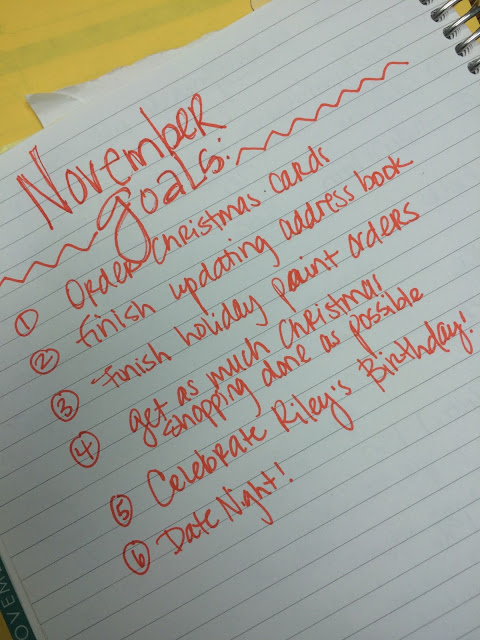 November
Goals:
① Order Christmas cards
② finish updating address book
③ finish holiday paint orders
④ get as much Christmas
shopping done as possible
⑤ Celebrate Riley's Birthday!
⑥ Date Night!